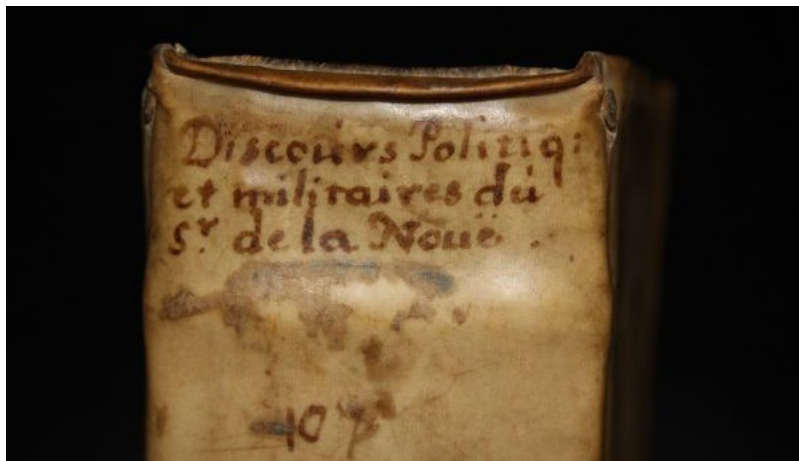 Discours Politiq:
et militaires du
Sr de la Nouë .